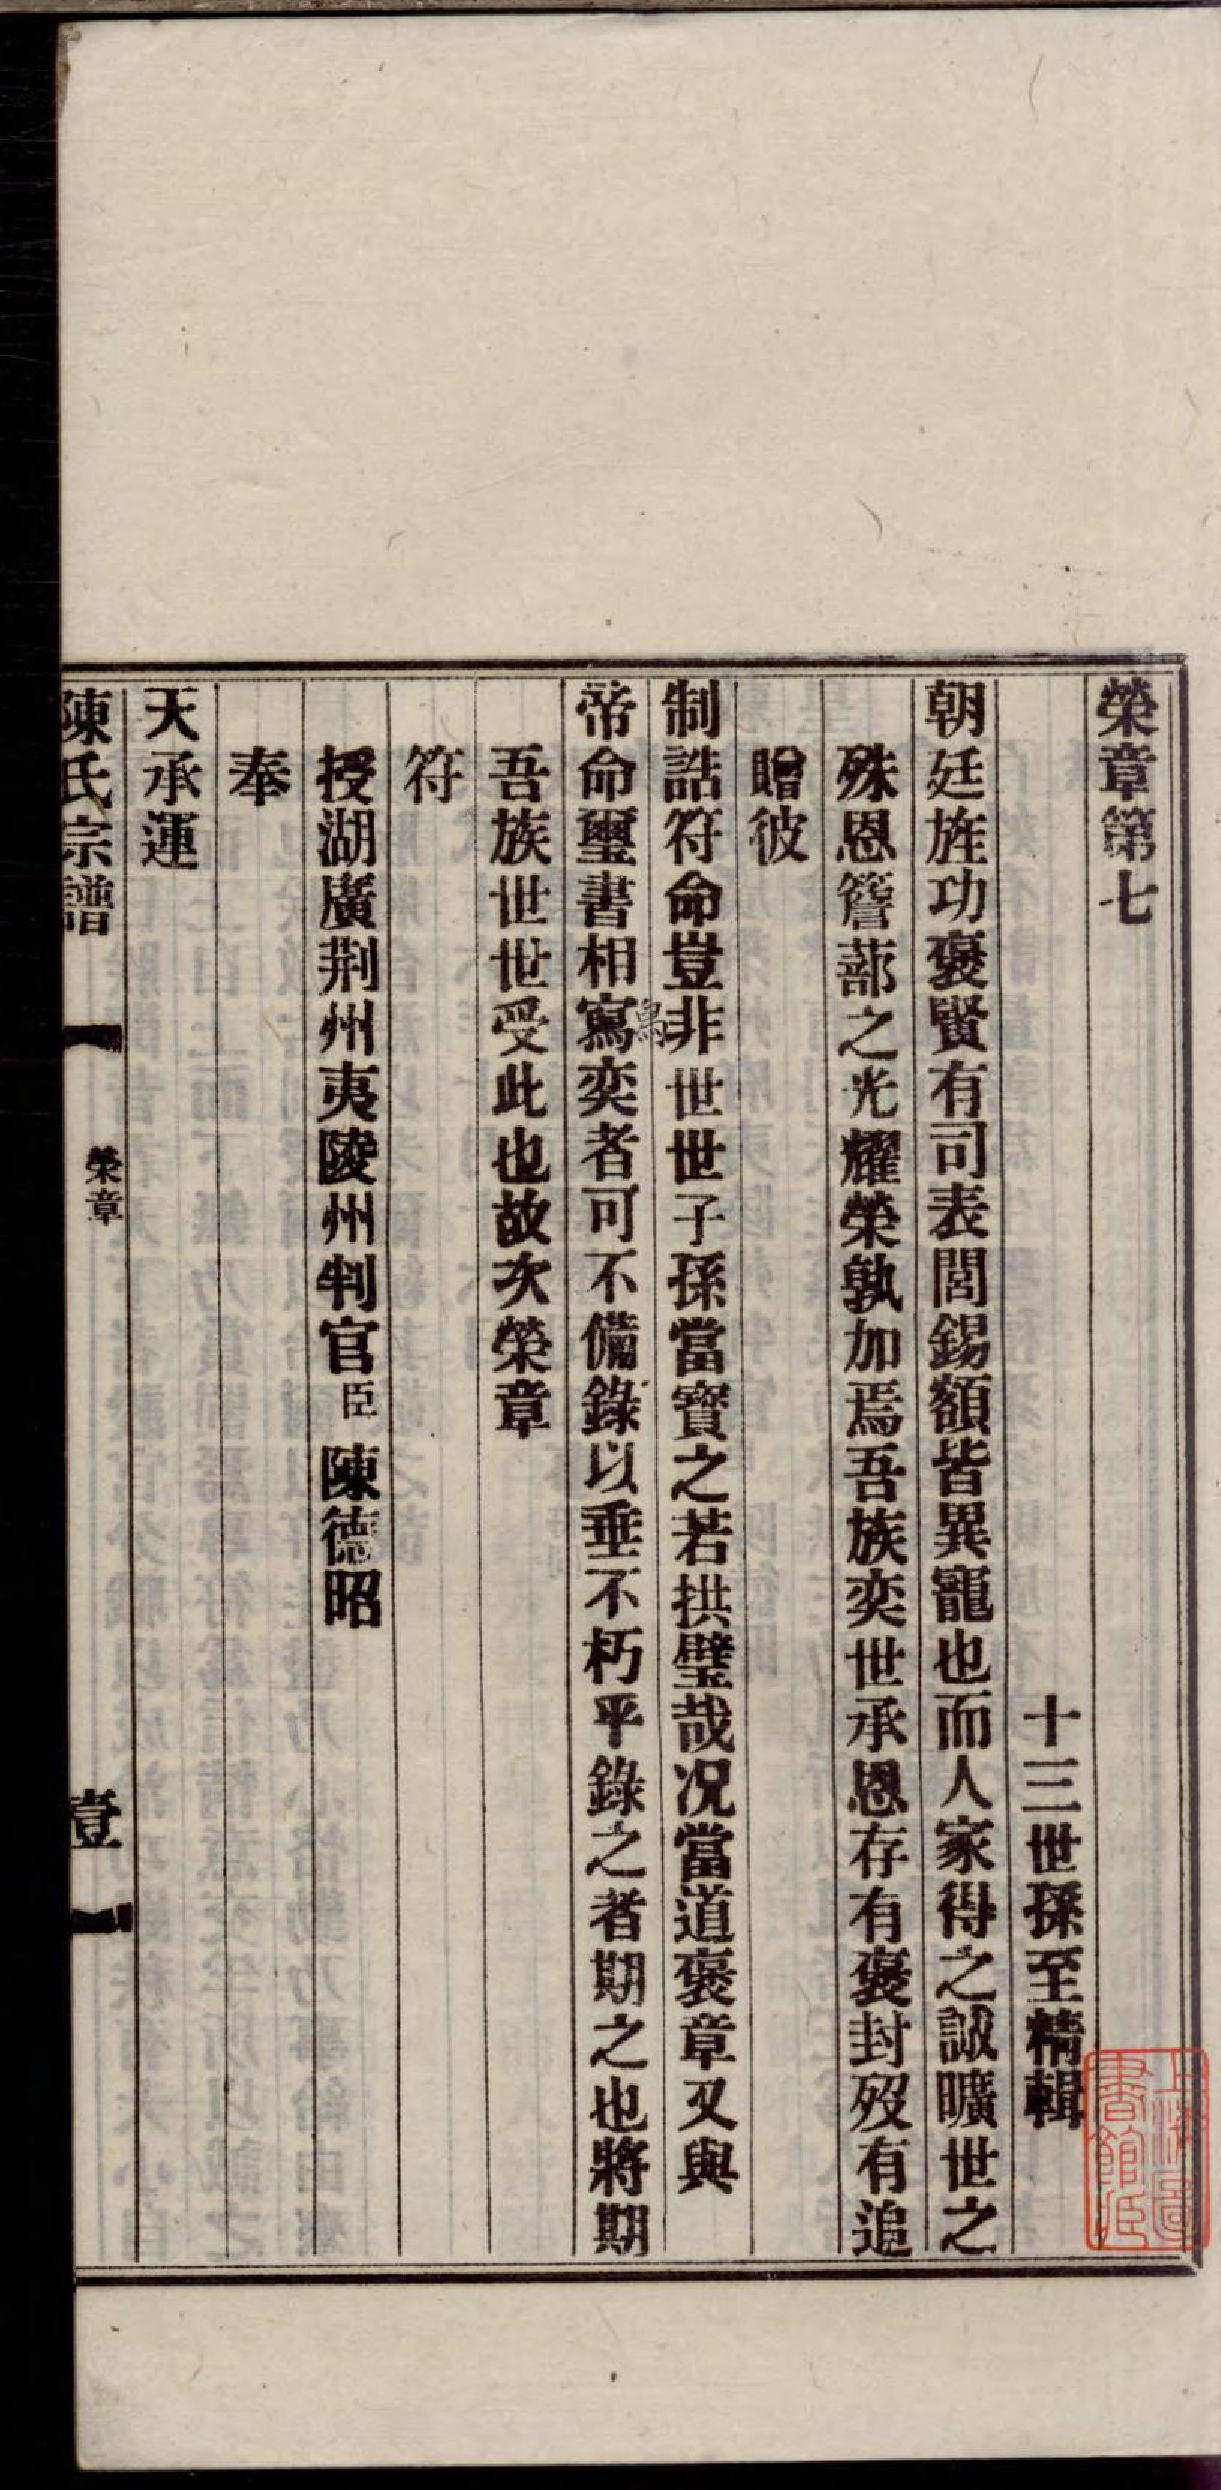 榮章第七
十三世孫至精輯
朝廷旌功褒賢有司表閭錫額皆異寵也而人家得之誠曠世之
殊恩簪蔀之光耀榮孰加焉吾族奕世承恩存有褒封歿有追
贈彼
制誥符命豈非世世子孫當寶之若拱璧哉况當道褒章又與
帝命璽書相寫奕者可不備錄以垂不朽乎錄之者期之也將期
吾族世世受此也故次榮章
符
授湖廣荆州夷陵州判官臣陳德昭
奉
天承運
陳氏宗譜
榮章
壹
上海圖書館藏